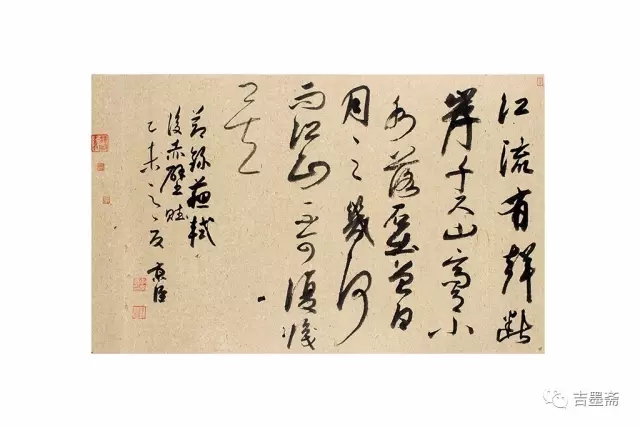 江流有聲斷
岸千尺山高月小
水落石出曾日
月之幾何
而江山不可復識
矣
節錄蘇軾
後赤壁賦
乙未之夏
吉墨斋